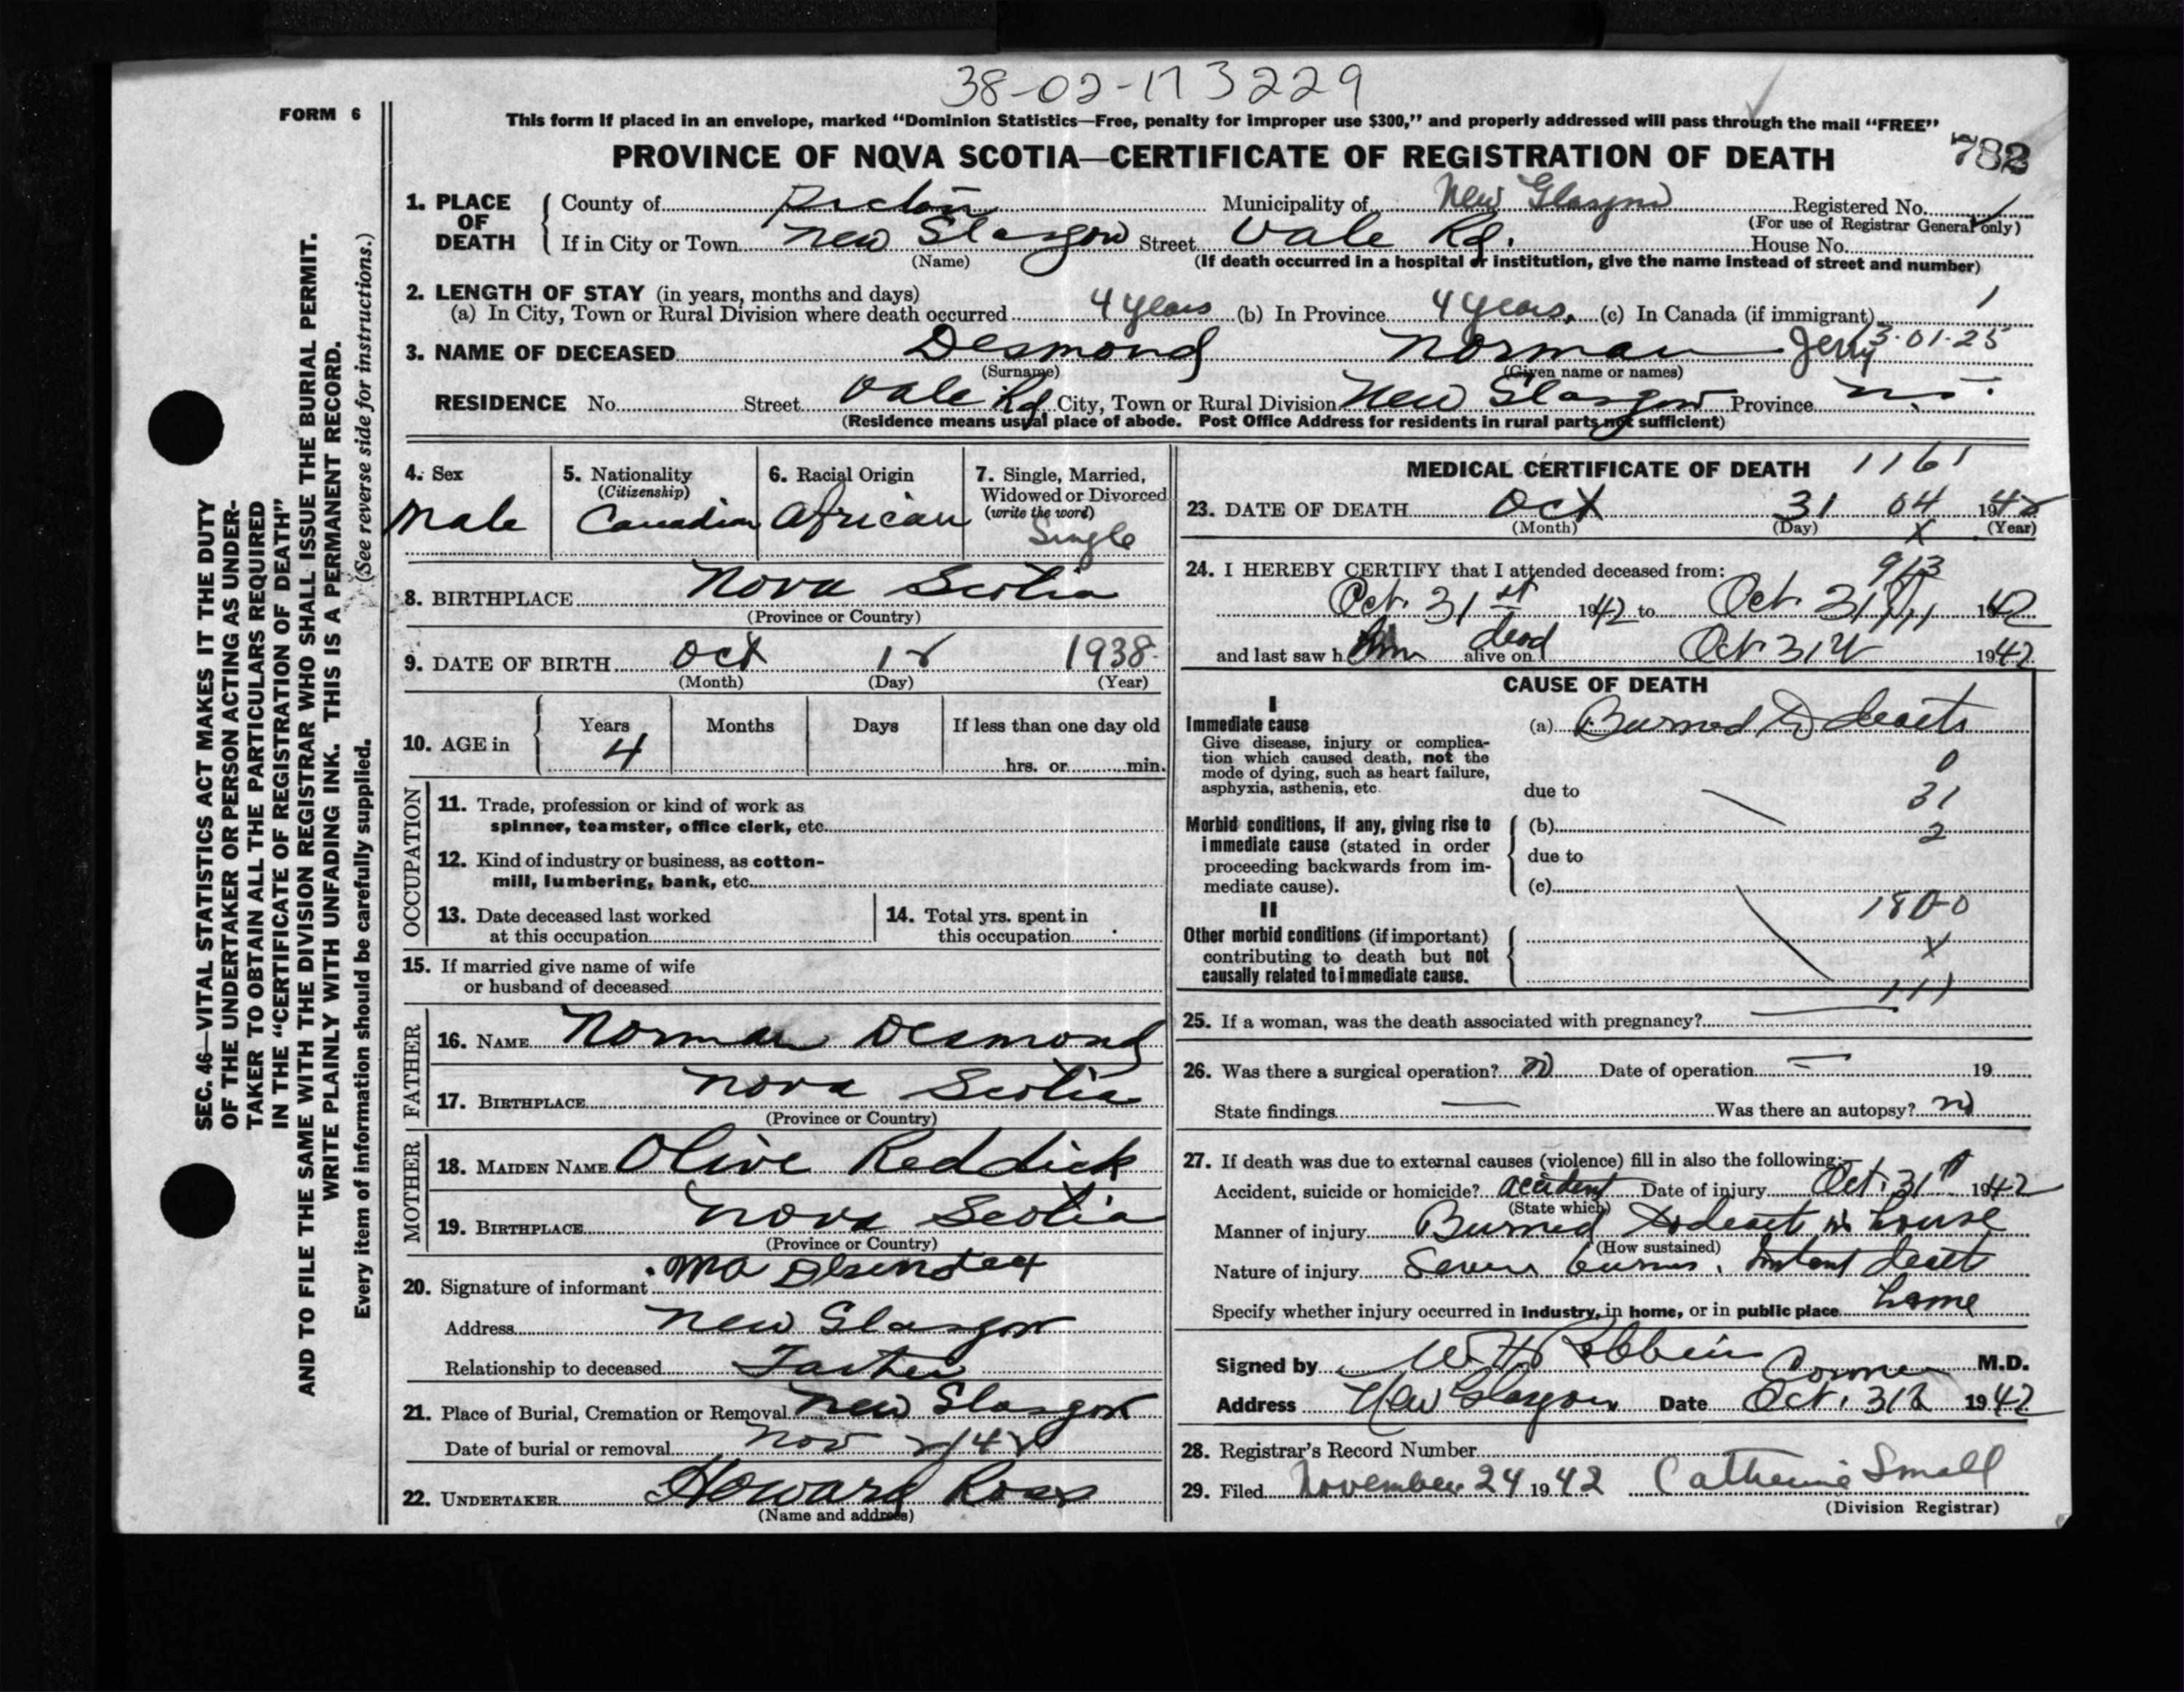 38-02-173229
FORM 6
This form if placed in an envelope, marked “Dominion Statistics—Free, penalty for improper use $300,” and properly addressed will pass through the mail “FREE”
PROVINCE OF NOVA SCOTIA—CERTIFICATE OF REGISTRATION OF DEATH 782
1. PLACE OF DEATH
County of Pictou Municipality of New Glasgow Registered No.
(For use of Registrar General only)
If in City or Town New Glasgow Street Vale Rd. House No.
(Name) (If death occurred in a hospital or institution, give the name instead of street and number)
2. LENGTH OF STAY (in years, months and days)
(a) In City, Town or Rural Division where death occurred 4 years (b) In Province 4 years. (c) In Canada (if immigrant)
3. NAME OF DECEASED Desmond Norman Jerry 3-01-25
(Surname) (Given name or names)
RESIDENCE No. Street Vale Rd City, Town or Rural Division New Glasgow Province N.S.
(Residence means usual place of abode. Post Office Address for residents in rural parts not sufficient)
4. Sex
Male
5. Nationality
(Citizenship)
Canadian
6. Racial Origin
African
7. Single, Married,
Widowed or Divorced
(write the word)
Single
8. BIRTHPLACE Nova Scotia
(Province or Country)
9. DATE OF BIRTH Oct 12 1938
(Month) (Day) (Year)
10. AGE in
Years Months Days If less than one day old
4
hrs. or min.
OCCUPATION
11. Trade, profession or kind of work as
spinner, teamster, office clerk, etc.
12. Kind of industry or business, as cotton-
mill, lumbering, bank, etc.
13. Date deceased last worked
at this occupation
14. Total yrs. spent in
this occupation
15. If married give name of wife
or husband of deceased
FATHER
16. NAME Norman Desmond
17. BIRTHPLACE Nova Scotia
(Province or Country)
MOTHER
18. MAIDEN NAME Olive Reddick
19. BIRTHPLACE Nova Scotia
(Province or Country)
20. Signature of informant
Address New Glasgow
Relationship to deceased
21. Place of Burial, Cremation or Removal New Glasgow
Date of burial or removal Nov 2/42
22. UNDERTAKER Howard Ross
(Name and address)
MEDICAL CERTIFICATE OF DEATH 1161
23. DATE OF DEATH Oct 31 04 1942
(Month) (Day) X (Year)
24. I HEREBY CERTIFY that I attended deceased from: 913
Oct. 31st 1942 to Oct. 31 1942
and last saw him dead alive on Oct 31 1942
CAUSE OF DEATH
I
Immediate cause
Give disease, injury or complica-
tion which caused death, not the
mode of dying, such as heart failure,
asphyxia, asthenia, etc.
(a) Burned to death
0
due to 31
Morbid conditions, if any, giving rise to
immediate cause (stated in order
proceeding backwards from im-
mediate cause).
(b) 2
due to
(c)
1800
II
Other morbid conditions (if important)
contributing to death but not
causally related to immediate cause.
X
111
25. If a woman, was the death associated with pregnancy?
26. Was there a surgical operation? no Date of operation — 19
State findings — Was there an autopsy? no
27. If death was due to external causes (violence) fill in also the following:—
Accident, suicide or homicide? accident Date of injury Oct. 31 1942
(State which)
Manner of injury Burned to death in house
(How sustained)
Nature of injury Severe burns. Instant death
Specify whether injury occurred in industry, in home, or in public place home
Signed by W. H. Robbins Coroner M.D.
Address New Glasgow Date Oct. 31 1942
28. Registrar's Record Number
29. Filed November 24 1942 Catherine Small
(Division Registrar)
SEC. 46—VITAL STATISTICS ACT MAKES IT THE DUTY
OF THE UNDERTAKER OR PERSON ACTING AS UNDER-
TAKER TO OBTAIN ALL THE PARTICULARS REQUIRED
IN THE “CERTIFICATE OF REGISTRATION OF DEATH”
AND TO FILE THE SAME WITH THE DIVISION REGISTRAR WHO SHALL ISSUE THE BURIAL PERMIT.
WRITE PLAINLY WITH UNFADING INK. THIS IS A PERMANENT RECORD.
Every item of information should be carefully supplied. (See reverse side for instructions.)